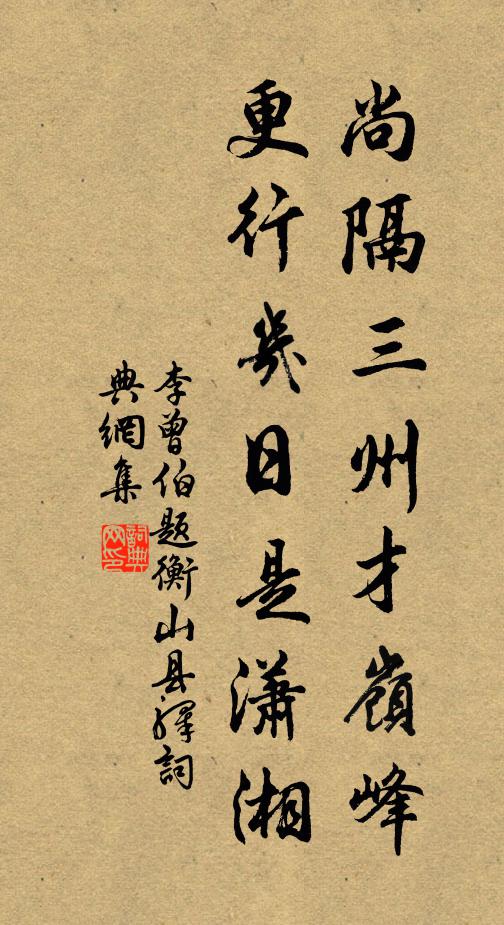 尚隔三州才嶺峰
更行幾日是瀟湘
李曾伯題衡山县驛詞
典網集
詞典网印